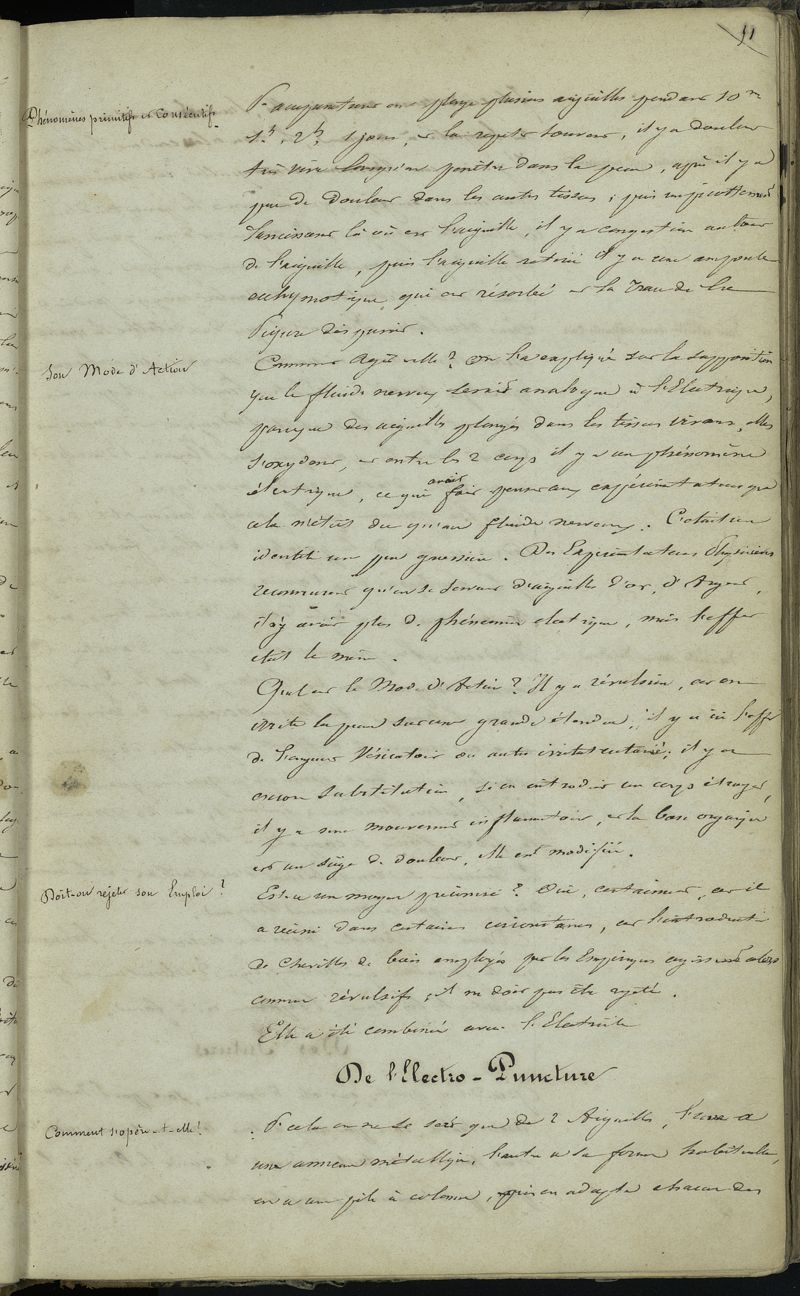 11
Phénomènes primitifs et Consécutifs
P. acupuncture on plonge plusieurs aiguilles pendant 10 m
1h, 2h, 1 jour, et la repeter souvent, il y a douleur
très vive lorsqu'on penètre dans la peau, après il y a
peu de douleur dans les autres tissus ; puis un picottement
lancinant là où est l'aiguille, il y a congestion autour
de l'aiguille, puis l'aiguille retirée il y a une ampoule
ecchymotique qui est résorbée et la trace de la
Piqure disparait.
Son Mode d'Action
Comment agit-elle ? on l'a expliqué sur la supposition
que le fluide nerveux serait analogue à l'Electrique,
parceque des aiguilles plongés dans les tissus vivans, elles
s'oxydent, et entre les 2 corps il y a un phénomène
électrique, ce qui avait fait penser aux expérimentateurs que
cela n'était du qu'au fluide nerveux. C'etait une
identité un peu grossière. Des Expérimentateurs Physiciens
reconnurent qu'en se servant d'aiguilles d'or, d'Argent,
il n'y avait plus de phénomène electrique, mais l'effet
etait le même.
Quel est le Mode d'Action ? Il y a révulsion, car on
irrite la peau sur une grande étendue, il y a ici l'effet
de Vésicatoire ou autre irritat cutané ; il y a
encore substitution, si on introduit un corps étranger,
il y a un mouvement inflammatoire, et la base organique
est un siège de douleur, elle est modifiée.
Doit-on rejeter son Emploi ?
Est-ce un moyen précieux ? Oui, certainement, car il
a réussi dans certaines circonstances, car l'introduction
de Chevilles de bois employés par les Empiriques agissent
comme révulsifs, il ne doit pas être rejeté.
Elle a été combinée avec l'Electricité
De l'Electro-Puncture
Comment s'opère-t-elle ?
P. cela on ne se sert que de 2 Aiguilles, l'une a
un anneau métallique, l'autre a sa forme habituelle,
on a une pile à colonne, puis on adapte chacun des